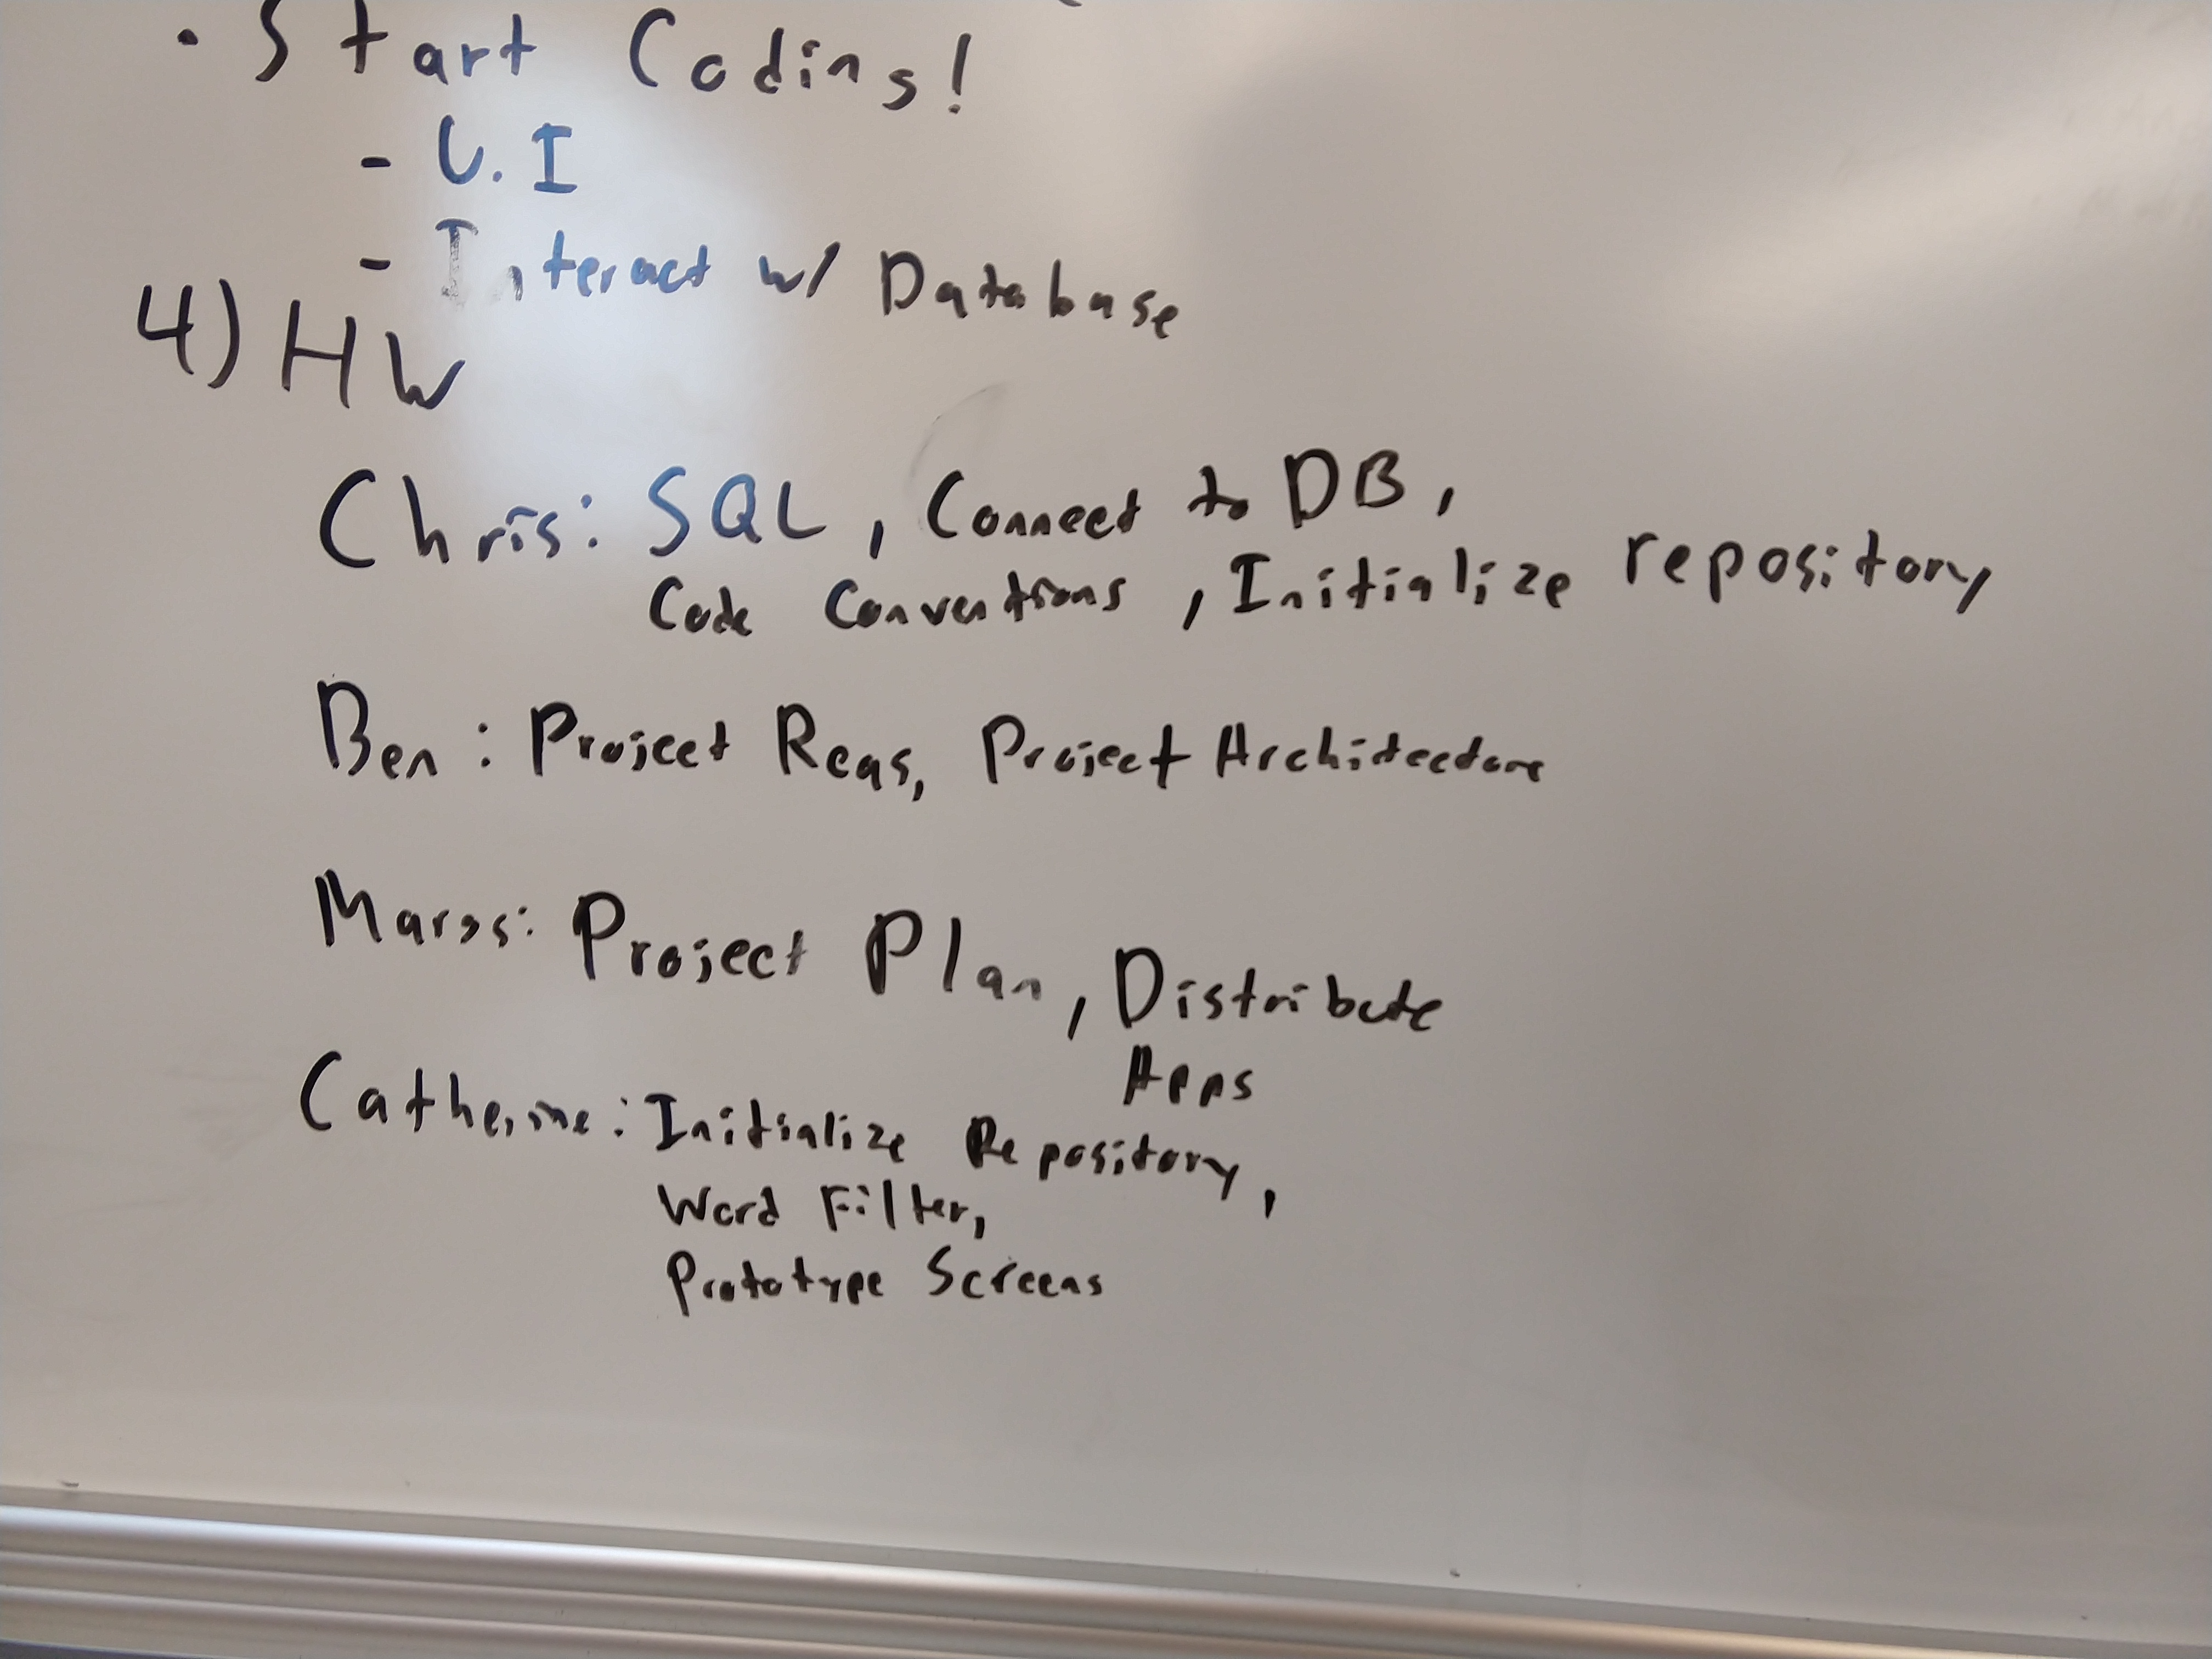 • Start Coding!
- U.I
- Interact w/ Database
4) HW
Chris: SQL, Connect to DB,
Code Conventions, Initialize repository
Ben: Project Reqs, Project Architecture
Project Plan, Distribute
Apps
Catherine: Initialize Repository,
Word Filter,
Prototype Screens